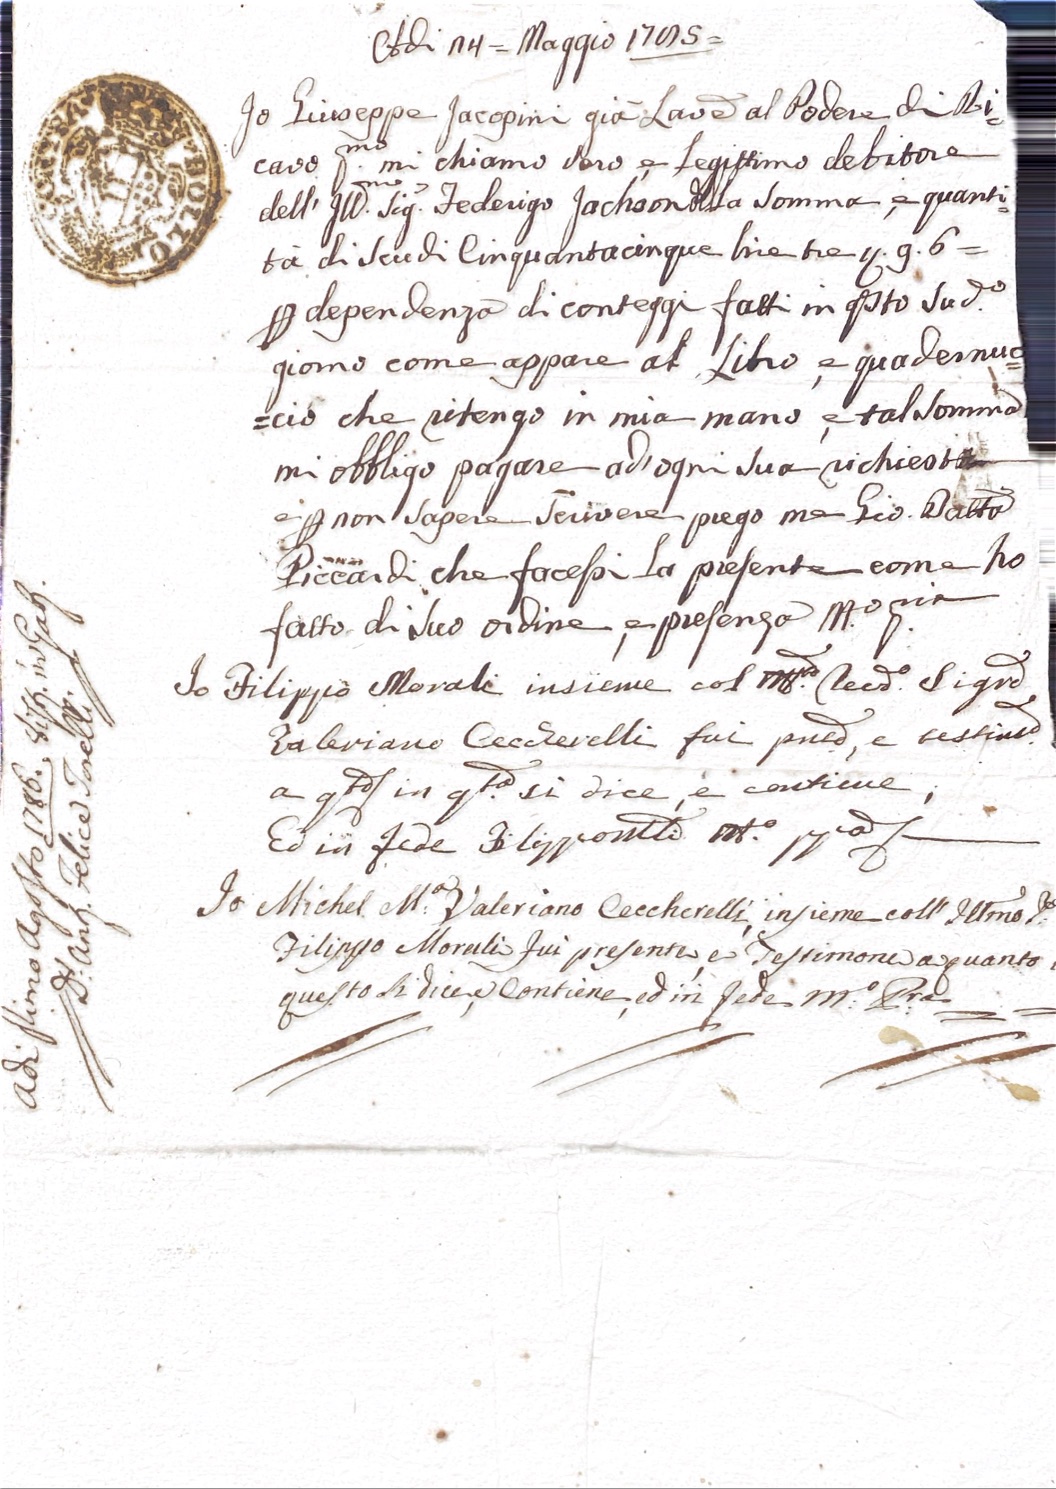 Adi 14 = Maggio 1785 =
Io Giuseppe Jacopini già Lavre al Podere di Ri=
cavo pmo mi chiamo vero, e Legittimo debitore
dell' Illmo Sig.r Federigo Jachson della Somma, e quanti=
tà di Scudi Cinquantacinque lire tre 6 =
p dependenza di conteggi fatti in qsto Sudo
giorno come appare al Libro, e quadernuc
=cio che ritengo in mia mano, e tal Somma
mi obbligo pagare ad ogni Sua richiesta
e p non Sapere Scrivere prego me Gio. Batta
Piccardi che facessi La presente come ho
fatto di Suo ordine, e presenza Mo pria
Io Filippo Morali insieme col Sigre
Valeriano Ceccherelli fui pnte, e testimo
a qto in qta si dice, e contiene,
Ed in Fede Filippo Mo ppa
Io Michel Ma Valeriano Ceccherelli, insieme coll' Illmo
Filippo Morali fui presente, e Testimone a quanto
questo si dice, e Contiene, ed in Fede Mo Pra
adi primo Agosto 1786.
Dr Ang. Felice Torelli